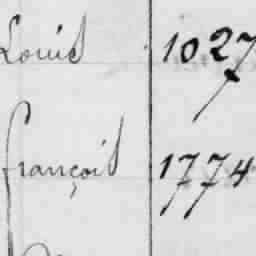 Louis 1027
François 1774